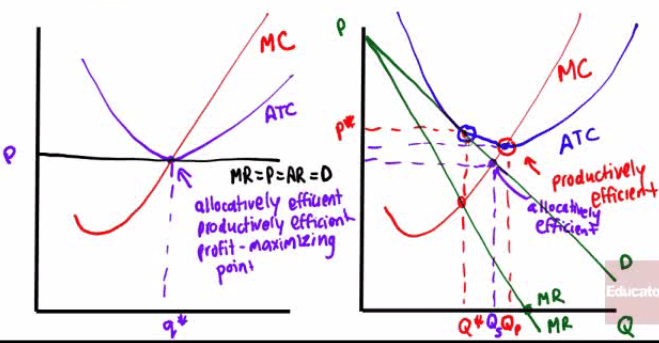 MC
ATC
P
MR=P=AR=D
allocatively efficient
productively efficient
profit-maximizing
point
q*
P
MC
P*
ATC
productively
efficient
allocatively
efficient
D
Educato
MR
Q* Qs Qp MR Q